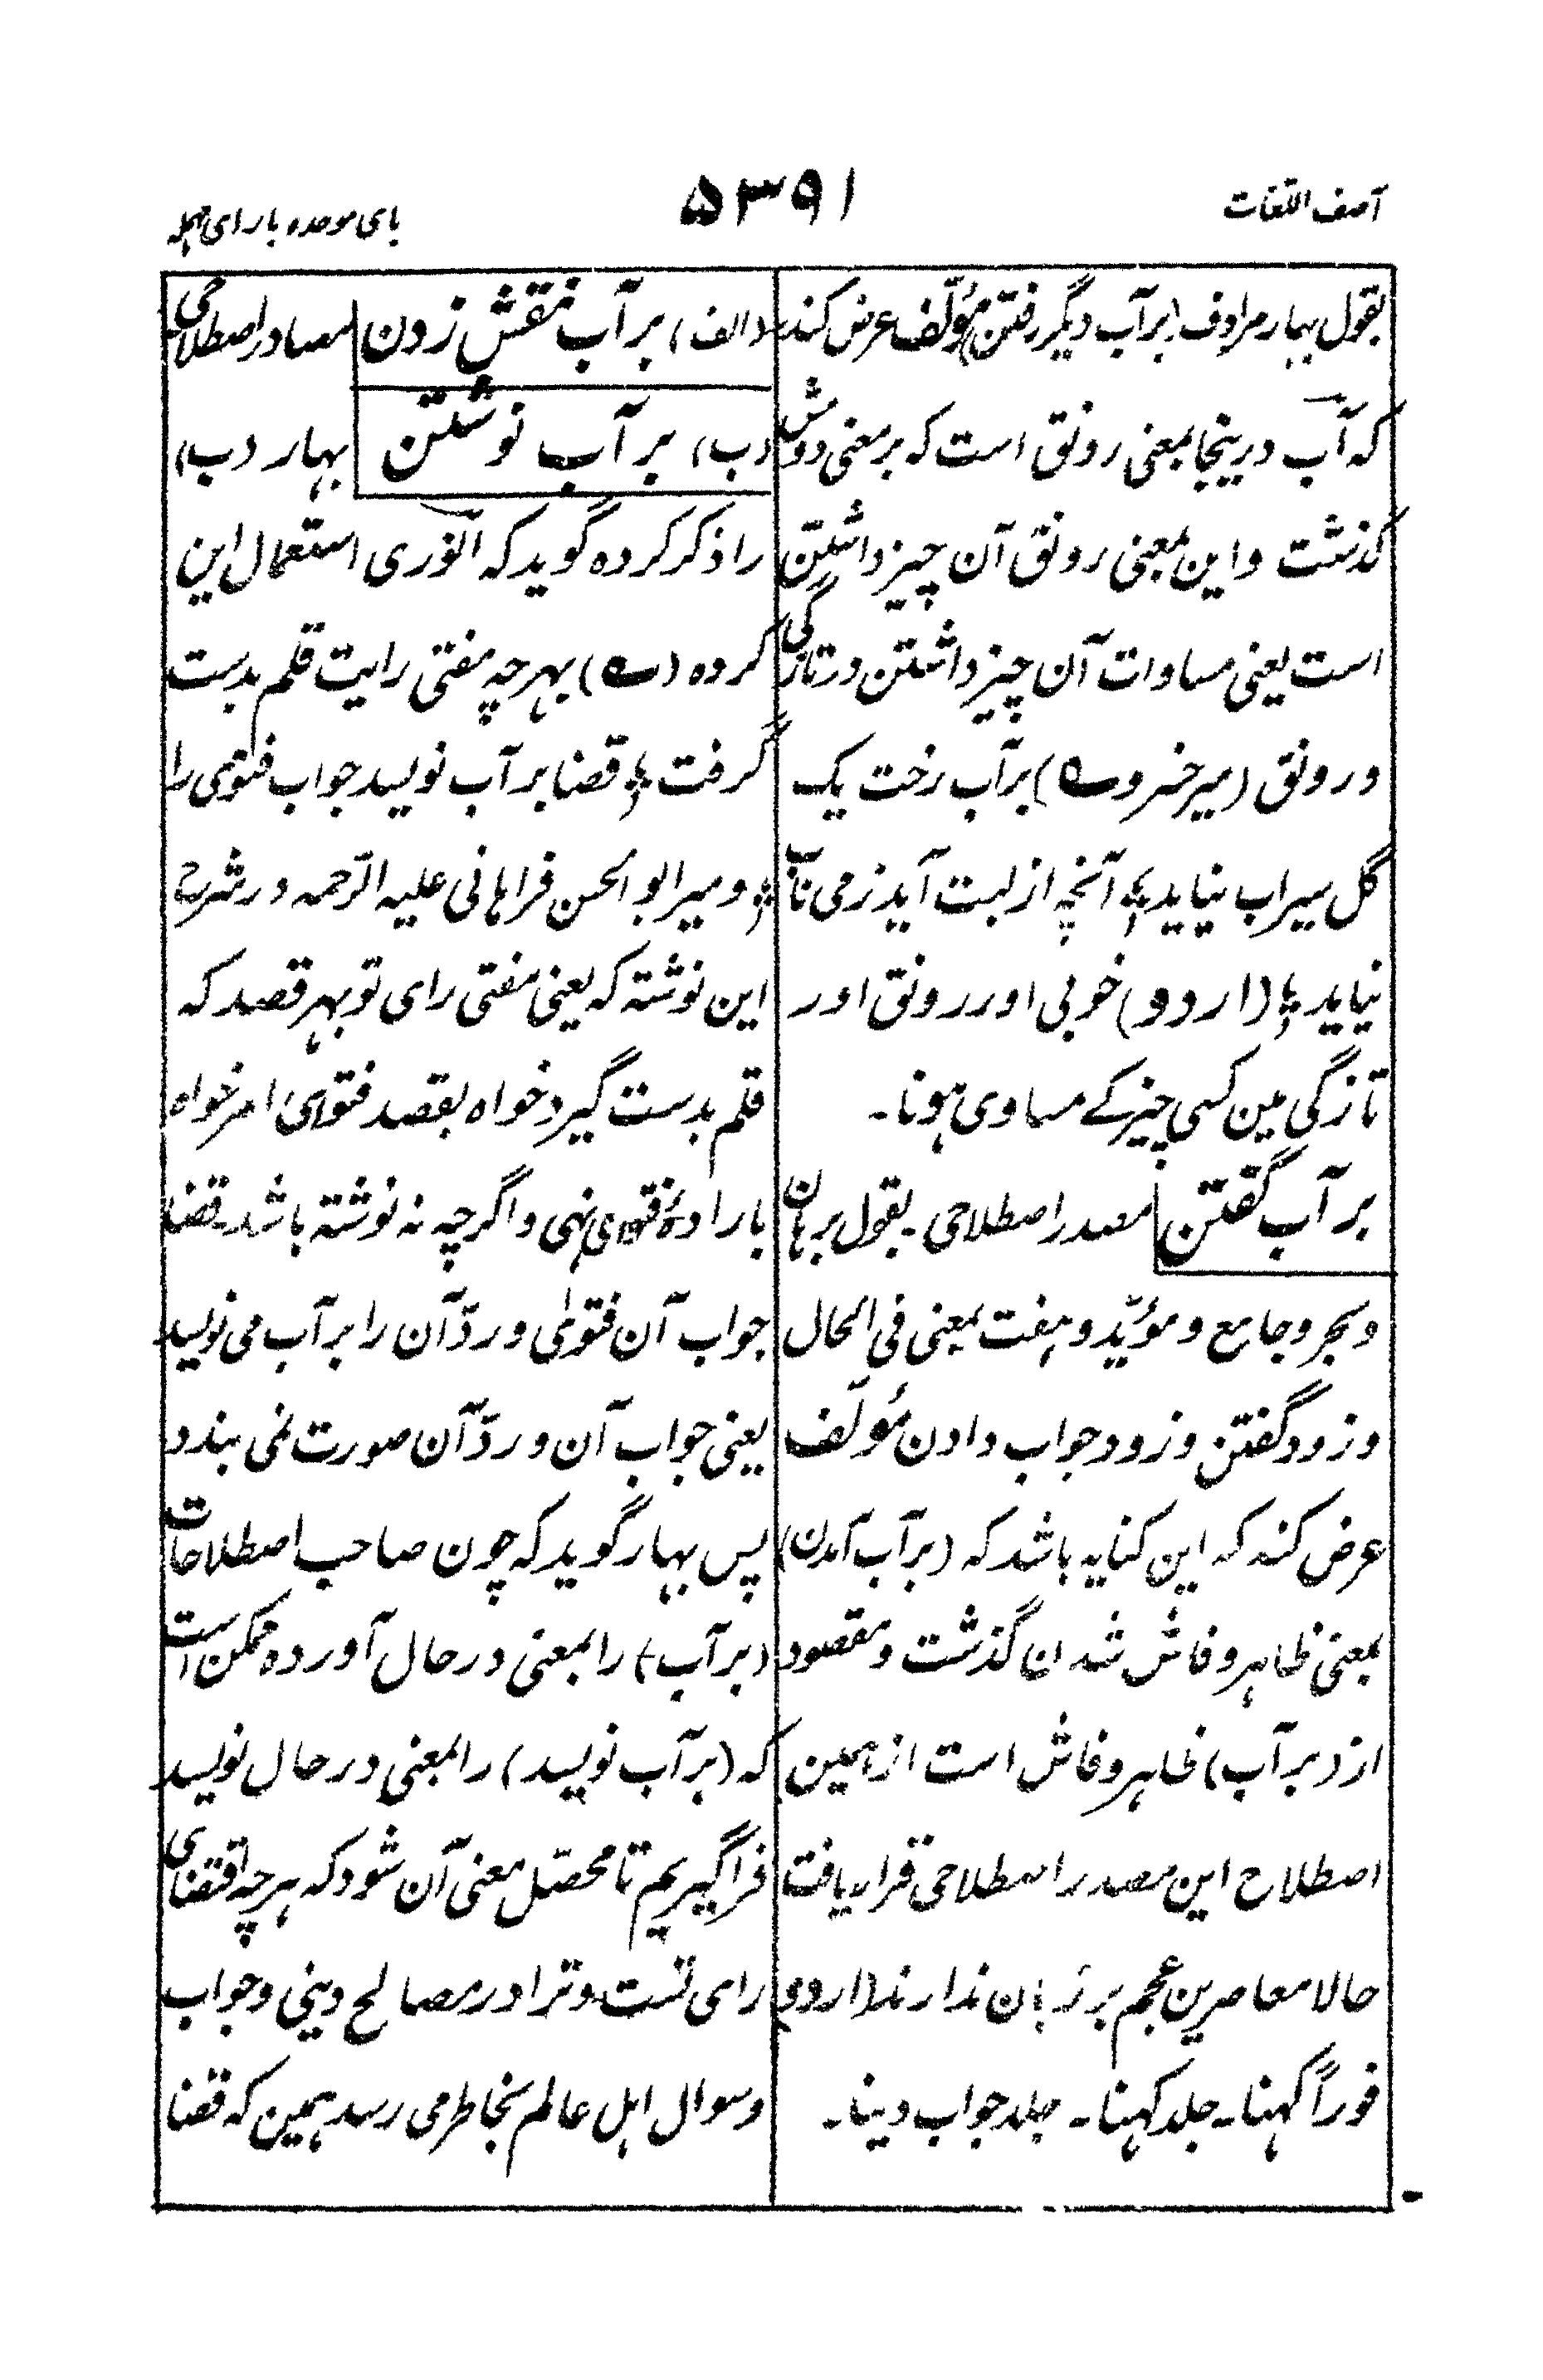 آصف اللغات
۵۳۹۱
بای موحده بارای مهمله
بقول بهار مرادف (برآب دیگر رفتن) مؤلّف عرض کند
که آب درینجا بمعنی رونق است که بر معنی دوش
گذشت و این بمعنی رونق آن چیز داشتن
است یعنی مساوات آن چیز داشتن در تازگی
و رونق (میر خسرو ؎) برآب رخت یک
گل سیراب نیاید ؛ آنچه از لبت آید ز می ناب
نیاید ؛ (اردو) خوبی اور رونق اور
تازگی مین کسی چیز کے مساوی ہونا۔
بر آب گفتن مصدر اصطلاحی۔ بقول برہان
و بحر و جامع و مؤیّد و ہفت بمعنی فی الحال
و زود گفتن و زود جواب دادن مؤلّف
عرض کند کہ این کنایہ باشد کہ (برآب آمدن)
بمعنی ظاہر و فاش شدن گذشت و مقصود
از (برآب) ظاہر و فاش است از ہمین
اصطلاح این مصدر اصطلاحی قرار یافت
حالا معاصرین عجم بر زبان ندارند (اردو)
فوراً کہنا۔ جلد کہنا۔ جلد جواب دینا۔
(الف) بر آب نقش زدن مصادر اصطلاحی
(ب) بر آب نوشتن بهار (ب)
را ذکر کرده گوید که انوری استعمال این
کرده (؎) بهر چه مفتی رایت قلم بدست
گرفت ؛ قضا بر آب نویسد جواب فتوی را
؛ و میر ابوالحسن فراہانی علیہ الرّحمہ در شرح
این نوشتہ کہ یعنی مفتی رای تو بهر قصد کہ
قلم بدست گیرد خواه بقصد فتوای امر خواه
بارادۂ فتوای نهی و اگرچه نہ نوشتہ باشد۔ قضا
جواب آن فتوٰی و ردّ آن را بر آب می نویسد
یعنی جواب آن و ردّ آن صورت نمی بندد
پس بهار گوید کہ چون صاحب اصطلاحات
(بر آب) را بمعنی در حال آورده ممکن است
کہ (برآب نویسد) را بمعنی در حال نویسد
فرا گیریم تا محصّل معنی آن شود کہ ہر چہ اقتضای
رای تست و ترا در مصالح دینی و جواب
و سوال اہل عالم بخاطر می رسد ہمین کہ قضا